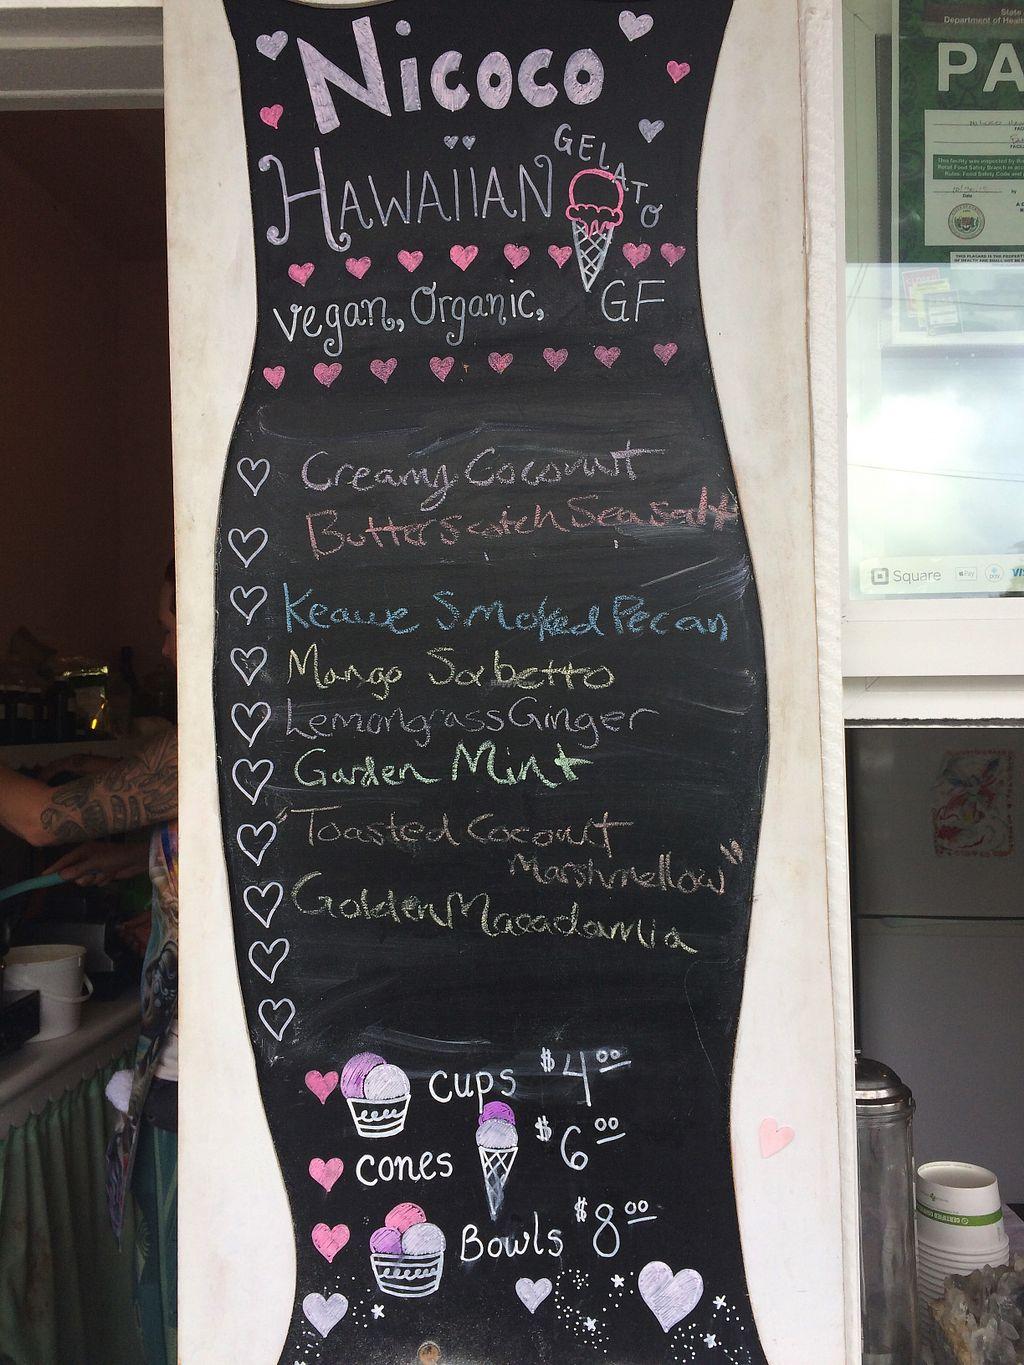 Nicoco
HAWAIIAN
GELATO
vegan, Organic, GF
Creamy Coconut
Butterscotch Seasalt
Keawe Smoked Pecan
Mango Sorbetto
Lemongrass Ginger
Garden Mint
"Toasted Coconut
Marshmellow"
Golden Macadamia
cups $4.00
cones $6.00
Bowls $8.00
State
Department of Heal
PA
Date
Square
Pay
VIS